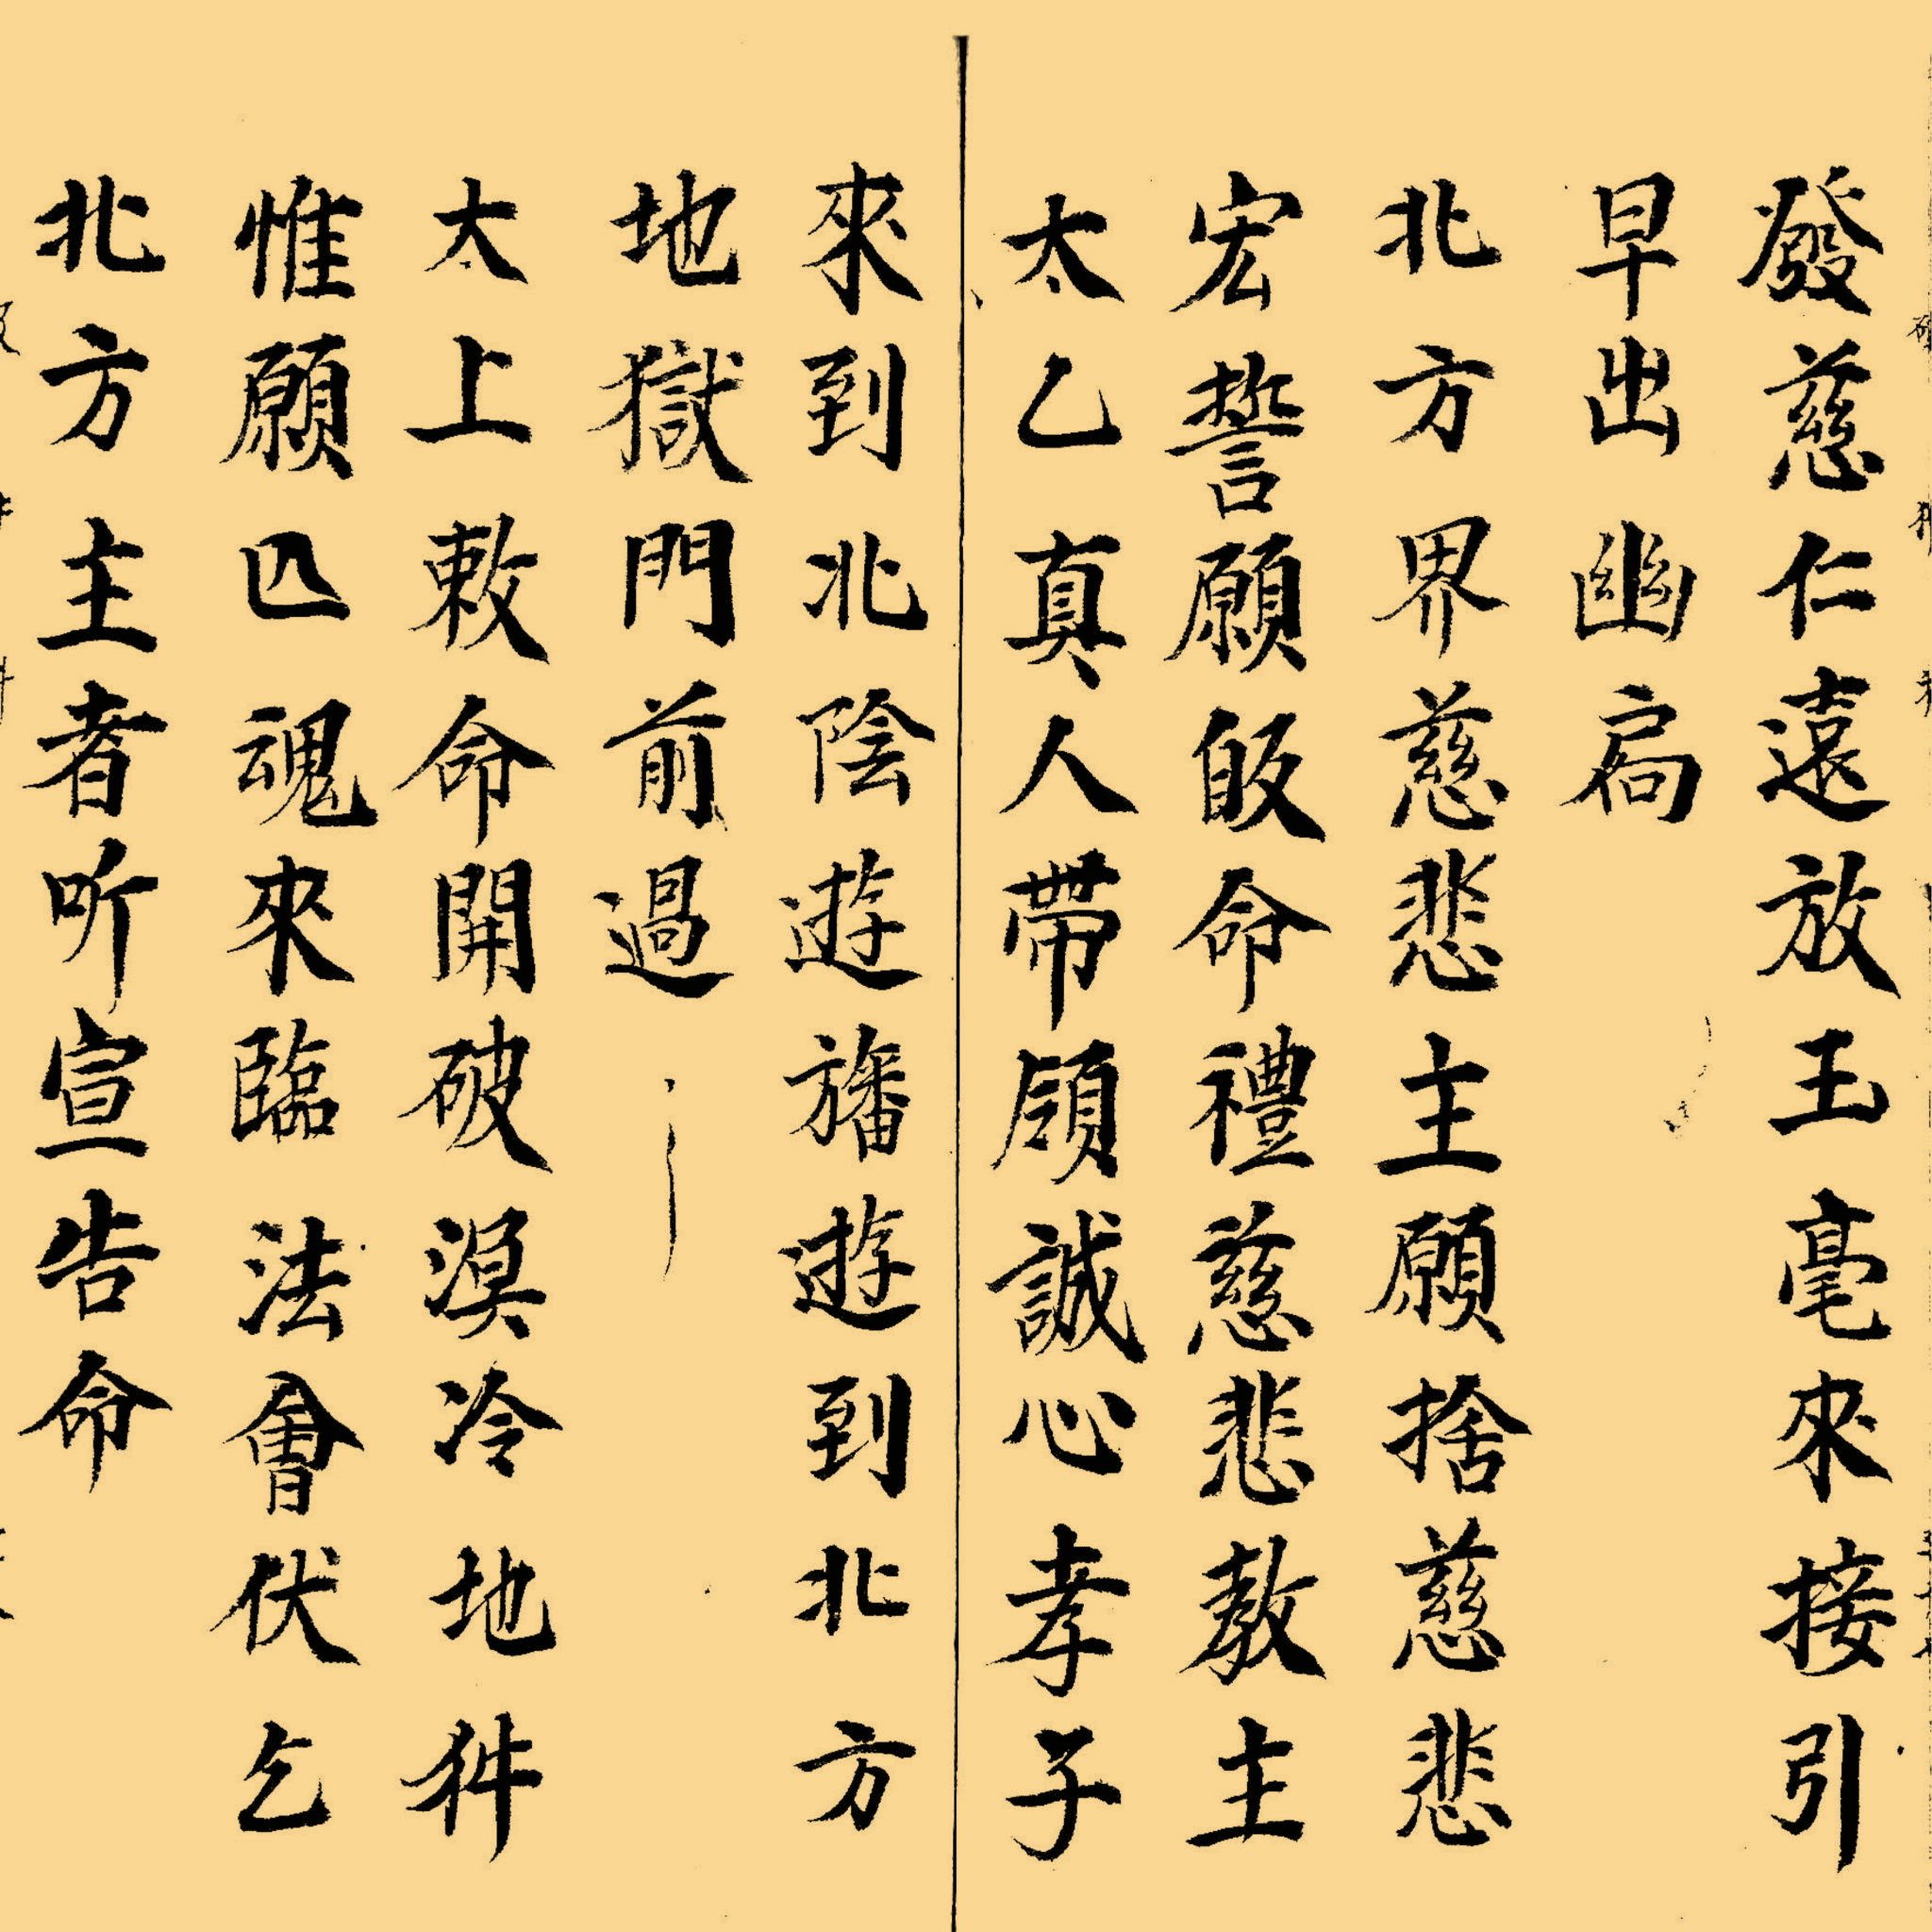 發慈仁遠放玉毫來接引
早出幽扃
北方界慈悲主願捨慈悲
宏誓願皈命禮慈悲教主
太乙真人帶領誠心孝子
來到北陰遊旛遊到北方
地獄門前過
太上敕命開破溟冷地獄
惟願亡魂來臨法會伏乞
北方主者听宣告命